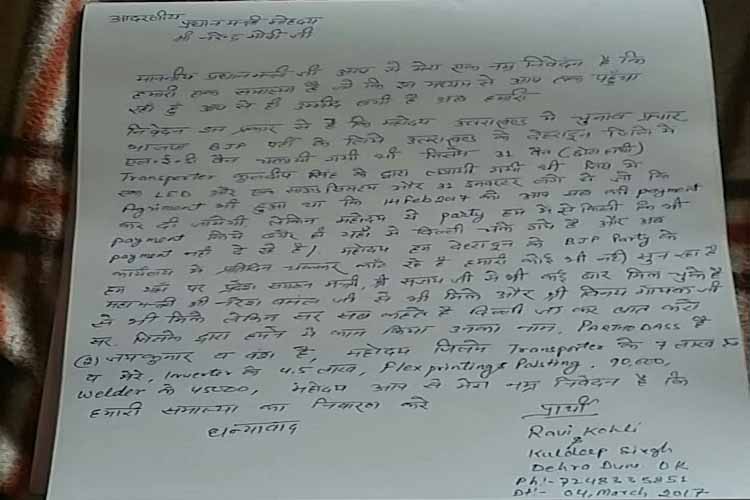 आदरणीय
प्रधान मन्त्री महोदय
श्री नरेन्द्र मोदी जी
माननीय प्रधानमन्त्री जी आप से मेरा एक नम्र निवेदन है कि
हमारी एक समस्या है जो कि इस माध्यम से आप तक पहुँचा
रहे हूँ आप से ही उम्मीद बची है अब हमारी
निवेदन इस प्रकार से है कि महोदय उत्तराखण्ड में चुनाव प्रचार
भाजपा BJP पार्टी के लिये उत्तराखण्ड के देहरादून जिले में
एल.ई.डी वैन चलायी गयी थी जिसमें 31 वैन (छोटा हाथी)
Transporter कुलदीप सिंह के द्वारा लगायी गयी थी जिस में
एक LED और एक साउन्ड सिस्टम और 31 इनवर्टर लगे थे जो कि
Agriment भी हुआ था कि 14 Feb 2017 को आप सब की payment
कर दी जायेगी लेकिन महोदय ये party हम में से किसी कि भी
payment किये बगैर ही यहाँ से दिल्ली चले गये है और अब
payment नही दे रहे है। महोदय हम देहरादून के BJP Party के
कार्यालय के प्रतिदिन चक्कर काट रहे है हमारी कोई भी नही सुन रहा है
हम यहाँ पर प्रदेश संगठन मन्त्री, श्री संजय जी से भी कई बार मिल चुके है
महामन्त्री श्री नरेश बंसल जी से भी मिले और श्री विनय गोयल जी
से भी मिले लेकिन सर सब कहते है दिल्ली जा कर बात करो
सर जिनके द्वारा हमने ये काम किया उनका नाम, PARTHO DASS है
व मेरे, Inverter के 4.5 लाख, Flex printing & Pasting, 90,600,
welder के 45000, महोदय आप से मेरा नम्र निवेदन है कि
हमारी समस्या का निवारण करे
धन्यवाद
प्रार्थी
Ravi Kohli
&
Kuldeep Singh
Dehra Dun. UK
Ph:- 7248335851
Dt:- 04, March, 2017